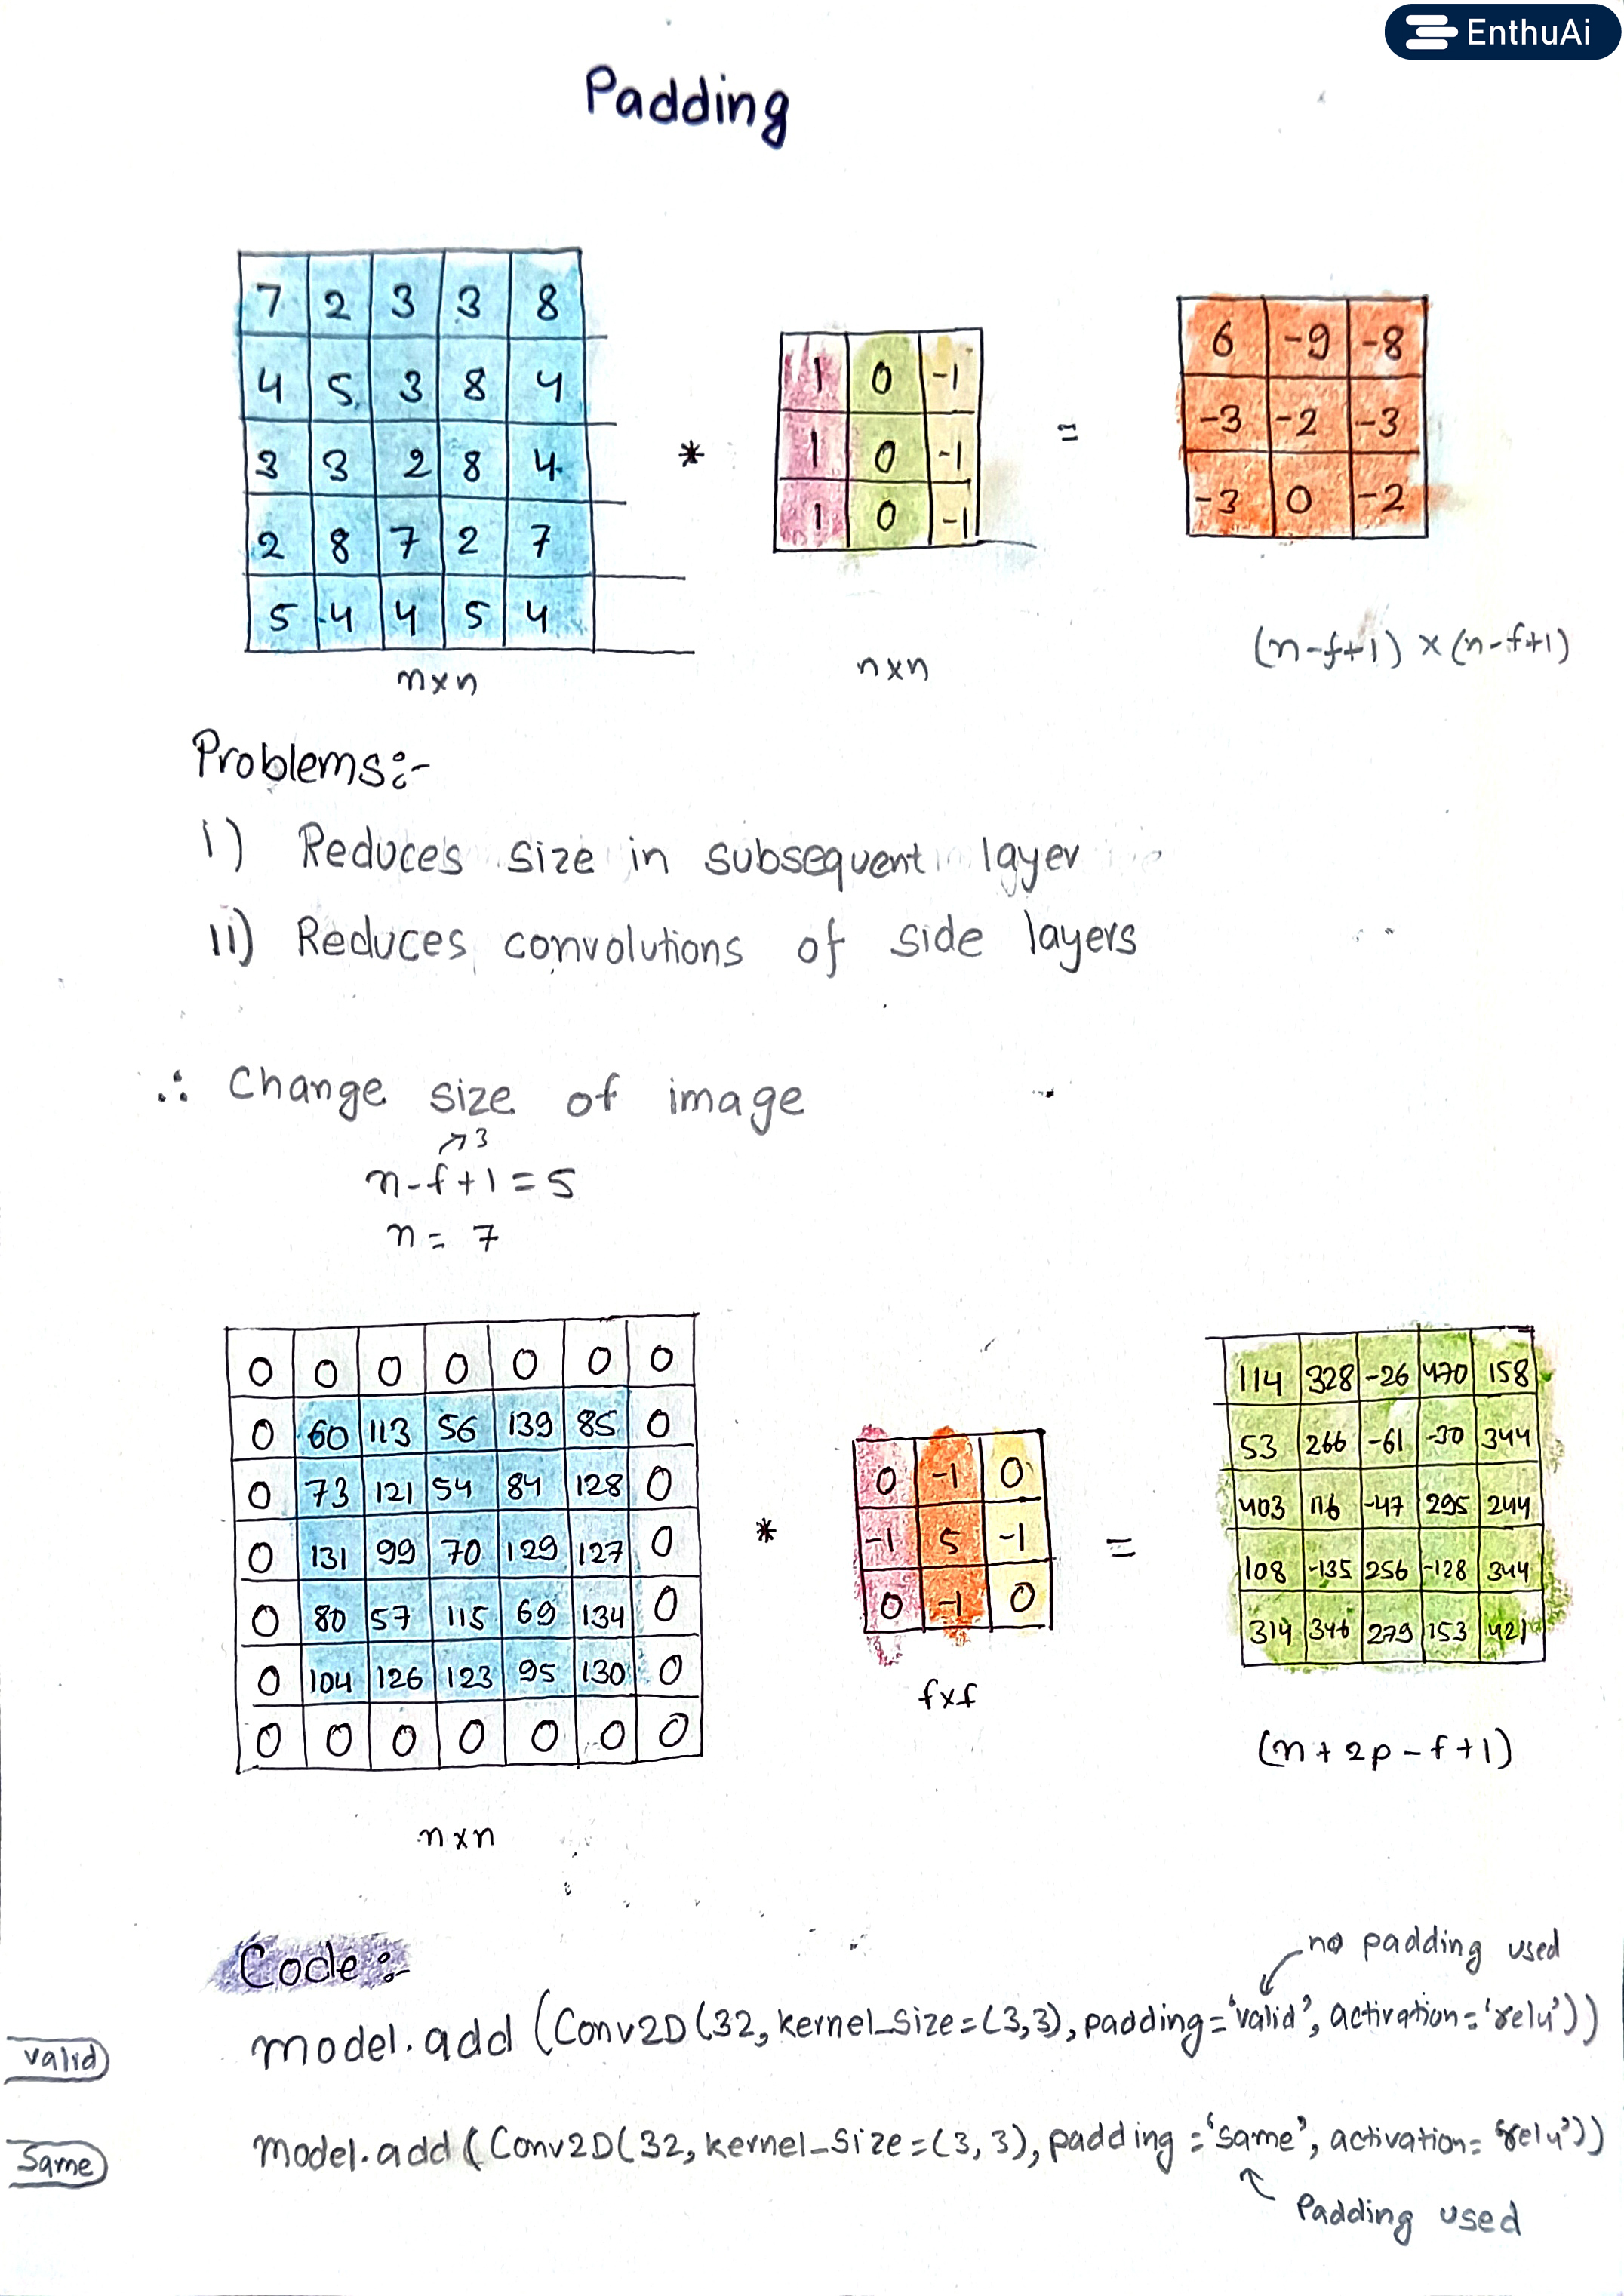 EnthuAi
Padding
7 2 3 3 8
4 5 3 8 4
3 3 2 8 4
2 8 7 2 7
5 4 4 5 4
n×n
*
1 0 -1
1 0 -1
1 0 -1
n×n
=
6 -9 -8
-3 -2 -3
-3 0 -2
(n-f+1) × (n-f+1)
Problems:-
i) Reduces size in subsequent layer
ii) Reduces convolutions of side layers
∴ Change size of image
↗3
n-f+1=5
n= 7
0 0 0 0 0 0 0
0 60 113 56 139 85 0
0 73 121 54 84 128 0
0 131 99 70 129 127 0
0 80 57 115 69 134 0
0 104 126 123 95 130 0
0 0 0 0 0 0 0
n×n
*
0 -1 0
-1 5 -1
0 -1 0
f×f
=
114 328 -26 470 158
53 266 -61 -30 344
403 116 -47 295 244
108 -135 256 -128 344
314 346 279 153 421
(n+2p-f+1)
Code:-
no padding used
valid
model.add(Conv2D(32, kernel_size=(3,3), padding='valid', activation='relu'))
Same
model.add(Conv2D(32, kernel_size=(3,3), padding='same', activation='relu'))
Padding used